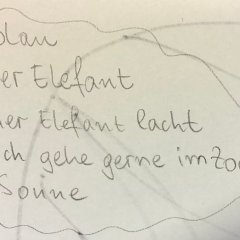 blau
er Elefant
er Elefant lacht
ch gehe gerne im Zoo
Sonne